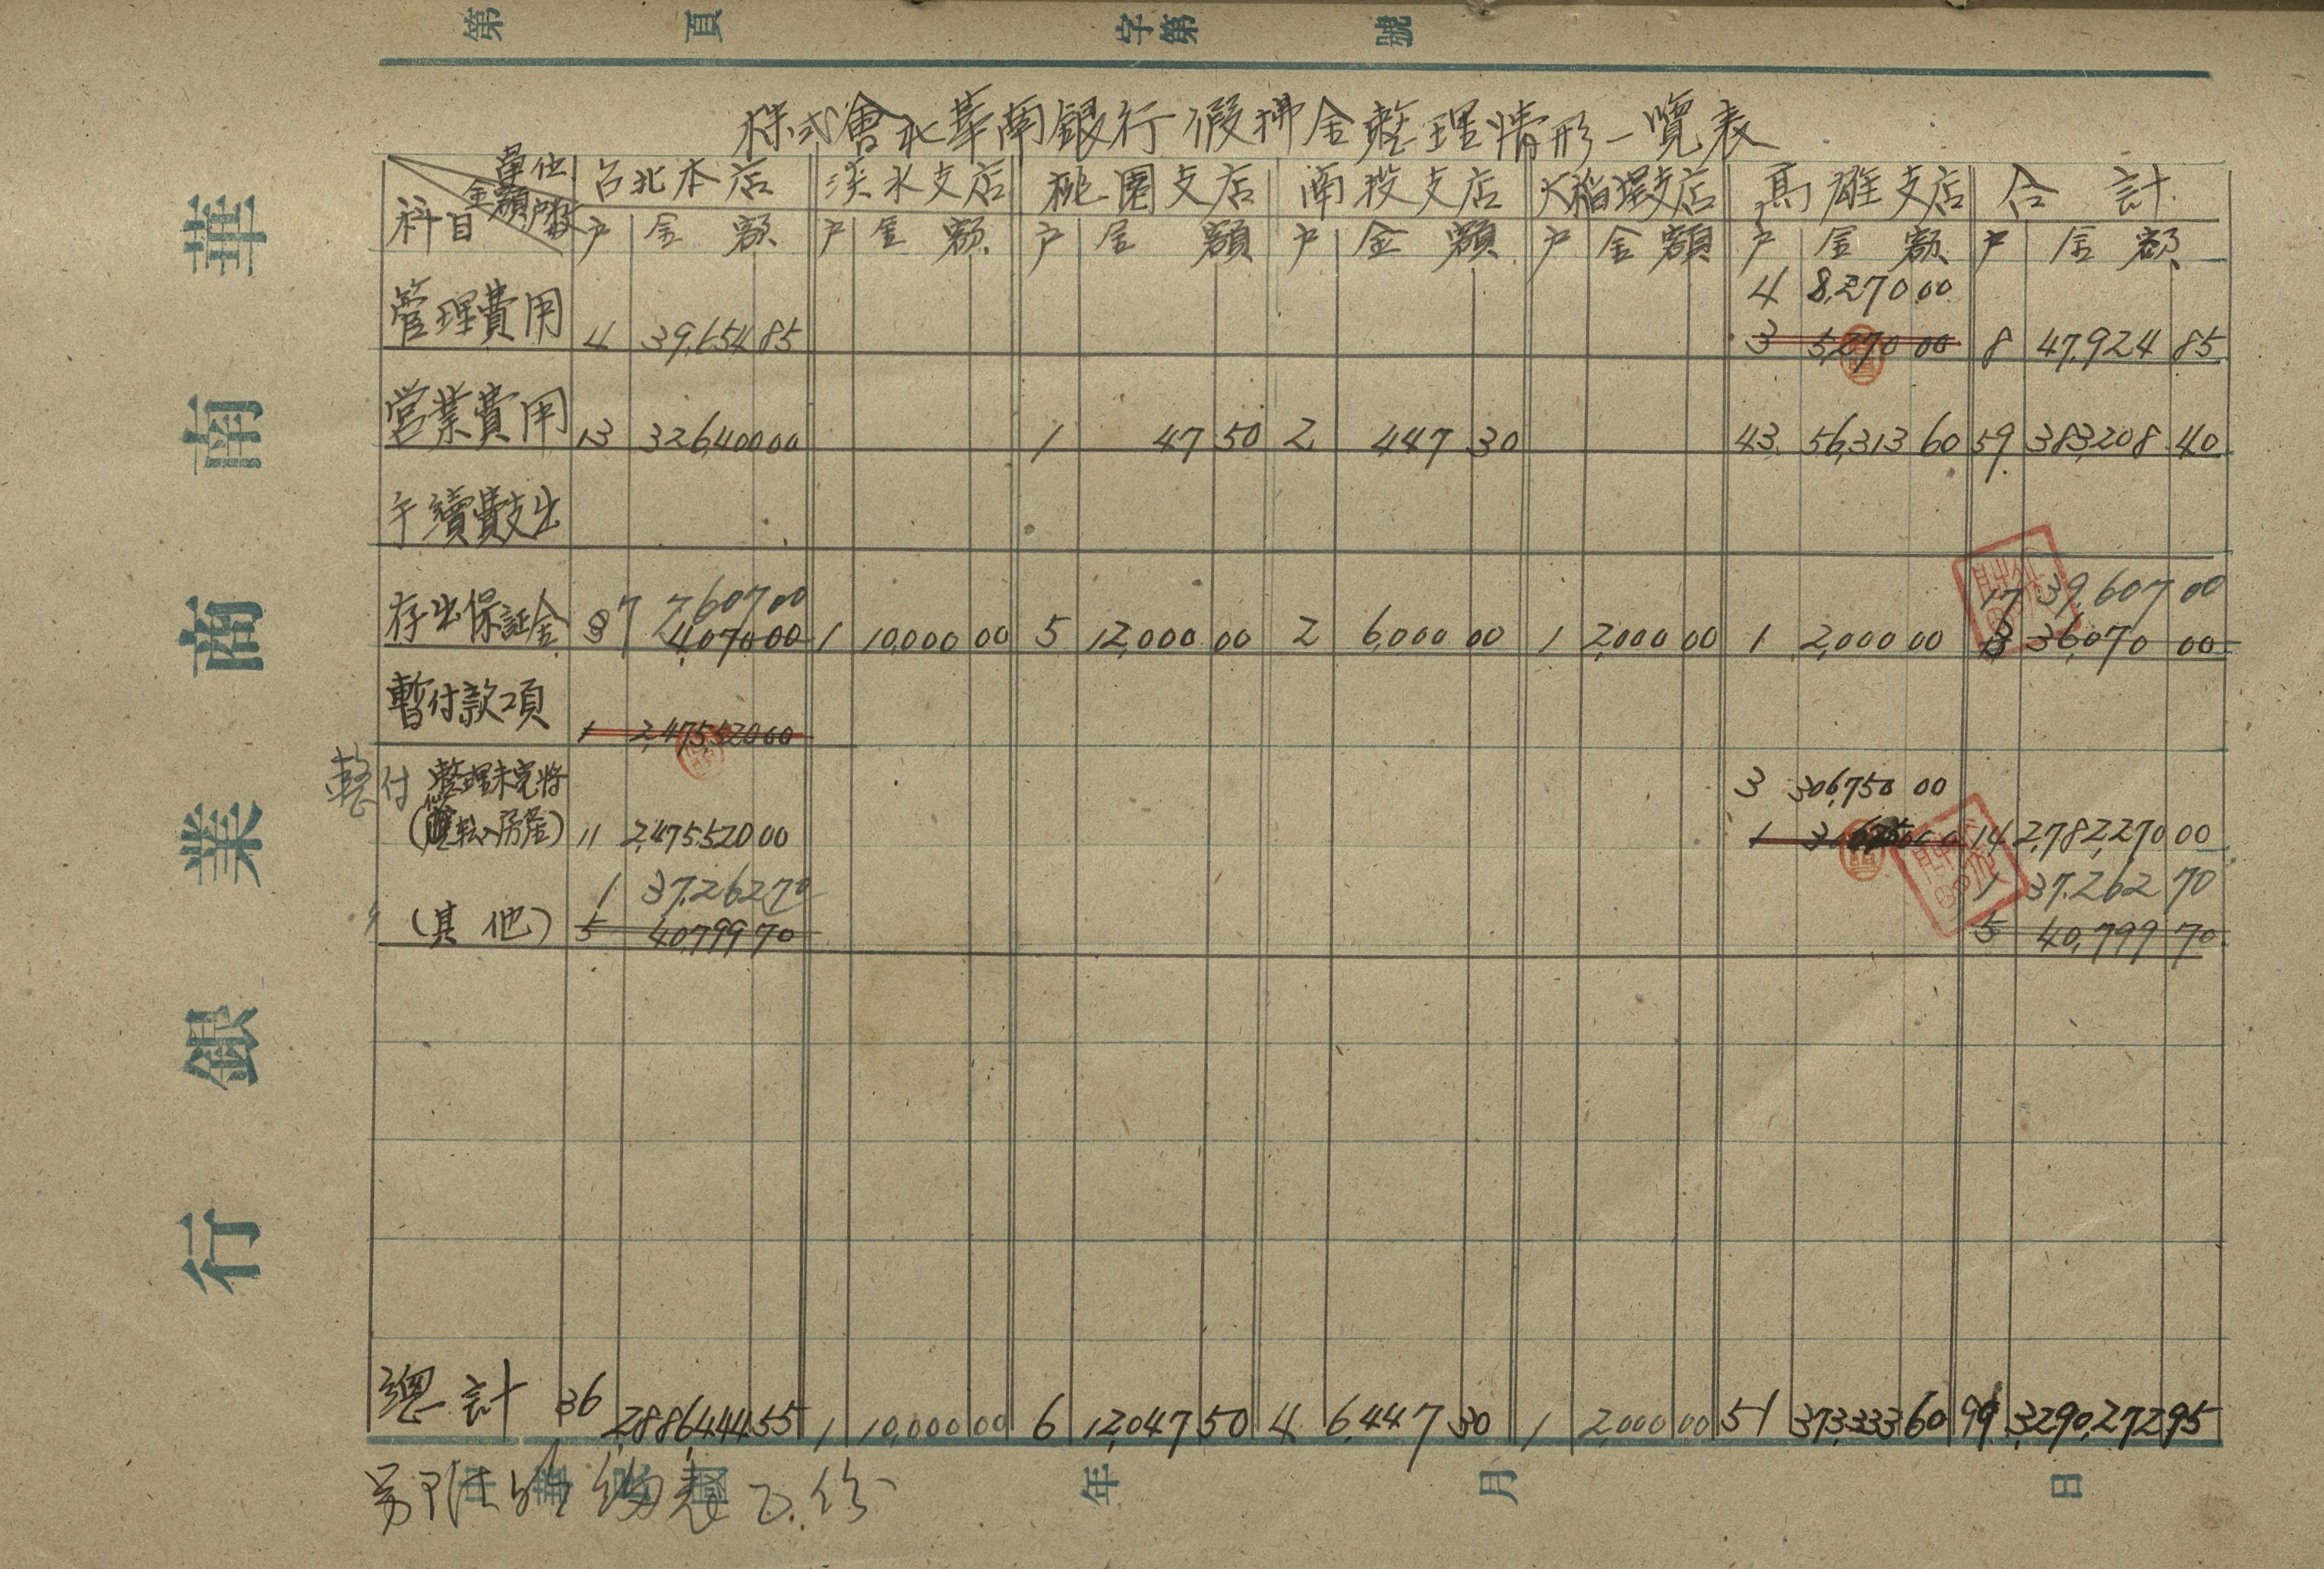 第 頁 字第 號
株式會社華南銀行假拂金整理情形一覽表
單位 金額戶數 科目 台北本店 淡水支店 桃園支店 南投支店 大稻埕支店 高雄支店 合計
戶 金額 戶 金額 戶 金額 戶 金額 戶 金額 戶 金額 戶 金額
4 8,270 00
管理費用 4 39,654 85 3 5,270 00 8 47,924 85
営業費用 13 326,400 00 1 47 50 2 447 30 43 56,313 60 59 383,208 40
手續費支出
7 7,607 00 17 39,607 00
存出保証金 4,070 00 1 10,000 00 5 12,000 00 2 6,000 00 1 2,000 00 1 2,000 00 13 36,070 00
暫付款項 1 2,475,520 00
暫付 整理未完將 3 306,750 00
轉入房產) 11 2,475,520 00 1 14 2,782,270 00
1 37,262 70 1 37,262 70
(其他) 5 40,799 70 5 40,799 70
總計 36 2,886,444 55 1 10,000 00 6 12,047 50 4 6,447 30 1 2,000 00 51 373,333 60 99 3,290,272 95
中華民國 年 月 日
另附 表 份
華南商業銀行